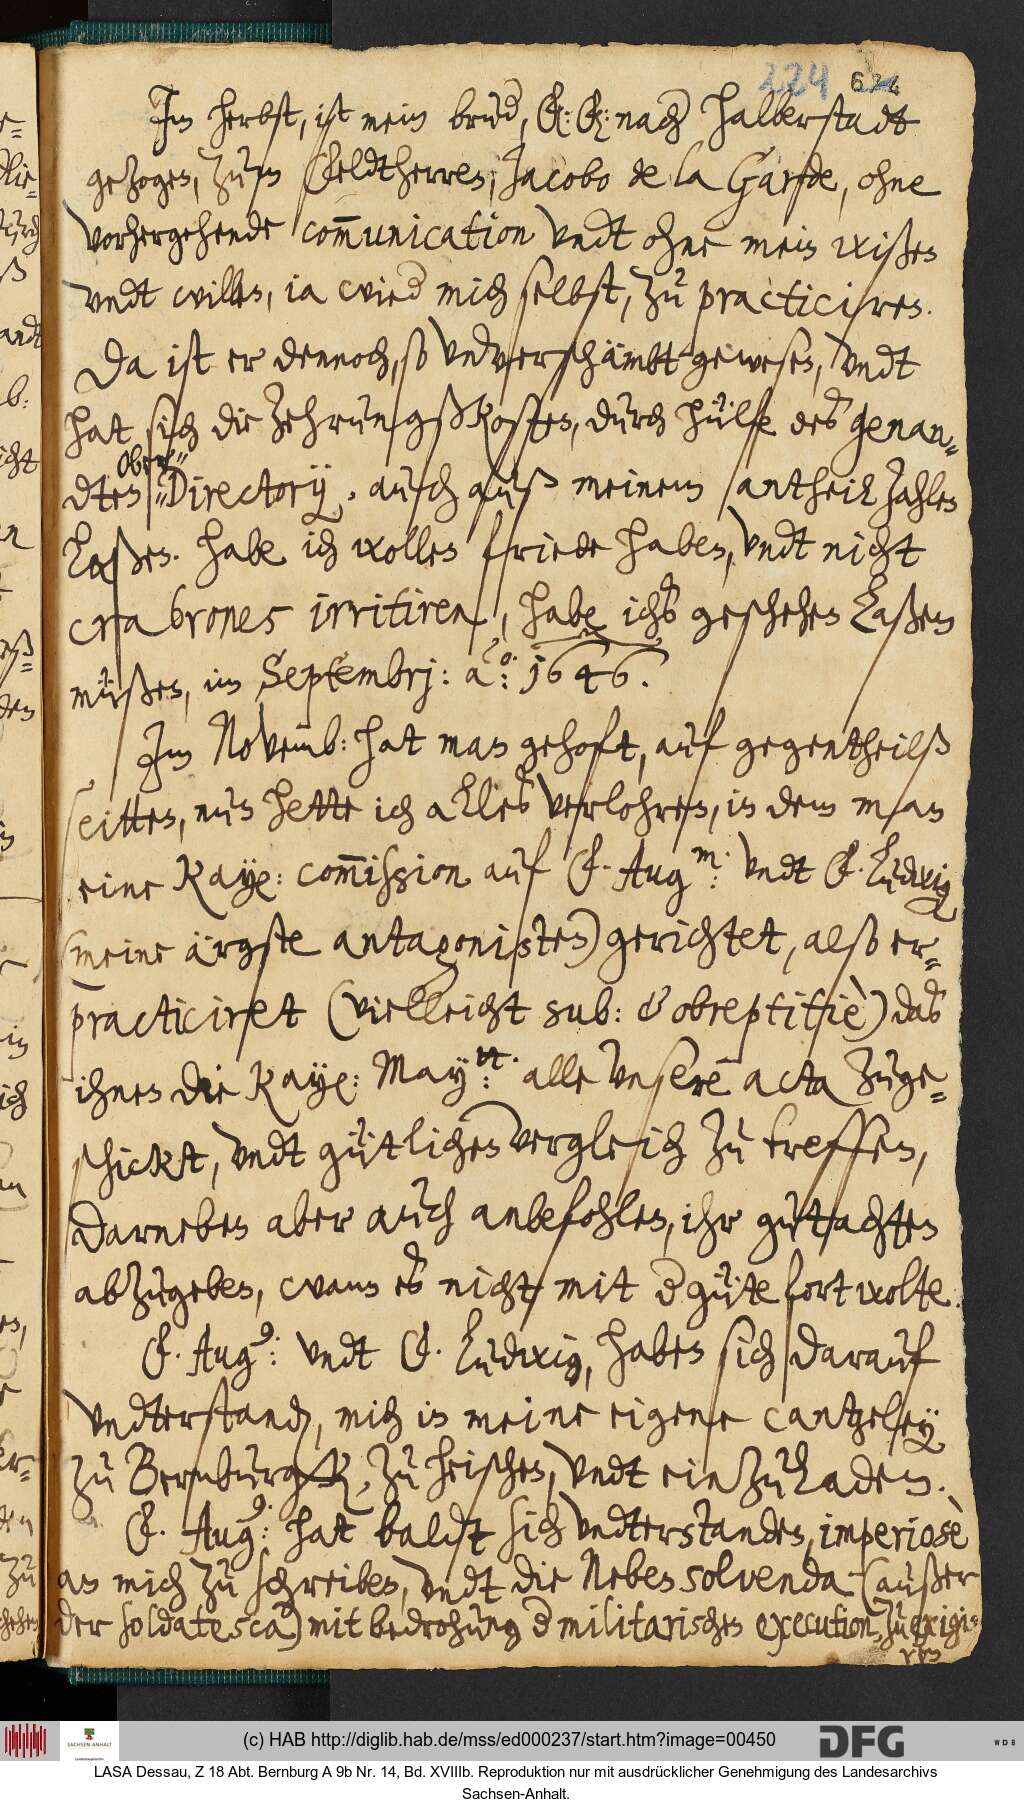 224 624
Im herbst, ist mein brud, F: F: nach Halberstadt
gezogen, zum Feldtherren, Jacobo de la Garde, ohne
vorhergehende com̅unication vndt ohne mein wißen
vndt willen, ia wied mich selbst, zu practiciren.
Da ist er dennoch, so vnverschämbt gewesen, vndt
hat sich die Zehrungßkosten, durch hülfe des genan-
Ober-
dten Directorij, auch auß meinem antheil zahlen
Laßen. Habe ich wollen friede haben, vndt nicht
crabrones irritiren, habe ichs geschehen Laßen
müßen, im Septembrj: ao: 1646.
Im Novemb: hat man gehoft, auf gegentheilß
seitten, nun hette ich alles verlohren, in dem man
eine Kayß: com̅ission auf F. Augm: vndt F. Ludwig
(meine ärgste antagonisten) gerichtet, also er-
practiciret (vielleicht sub: & obreptitiè) das
ihnen die Kay: May: alle vnsere acta zuge-
schickt, vndt gütlichen vergleich zu treffen,
darneben aber auch anbefohlen, ihr gutachten
abzugeben, wann es nicht mit d güte fort wolte.
F. Aug: vndt F. Ludwig, haben sich darauf
vndterstanden, mich in meine eigene cantzeley
zu Bernburgk, zu heischen, vndt einzuladen.
F. Aug: hat baldt sich vndterstanden, imperiosè
an mich zu schreiben, vndt die Neben solvenda (außer
der soldatesca) mit bedrohung d militarischen execution, zu exigi-
ren
(c) HAB http://diglib.hab.de/mss/ed000237/start.htm?image=00450
DFG
WDB
SACHSEN-ANHALT
LASA Dessau, Z 18 Abt. Bernburg A 9b Nr. 14, Bd. XVIIIb. Reproduktion nur mit ausdrücklicher Genehmigung des Landesarchivs
Sachsen-Anhalt.